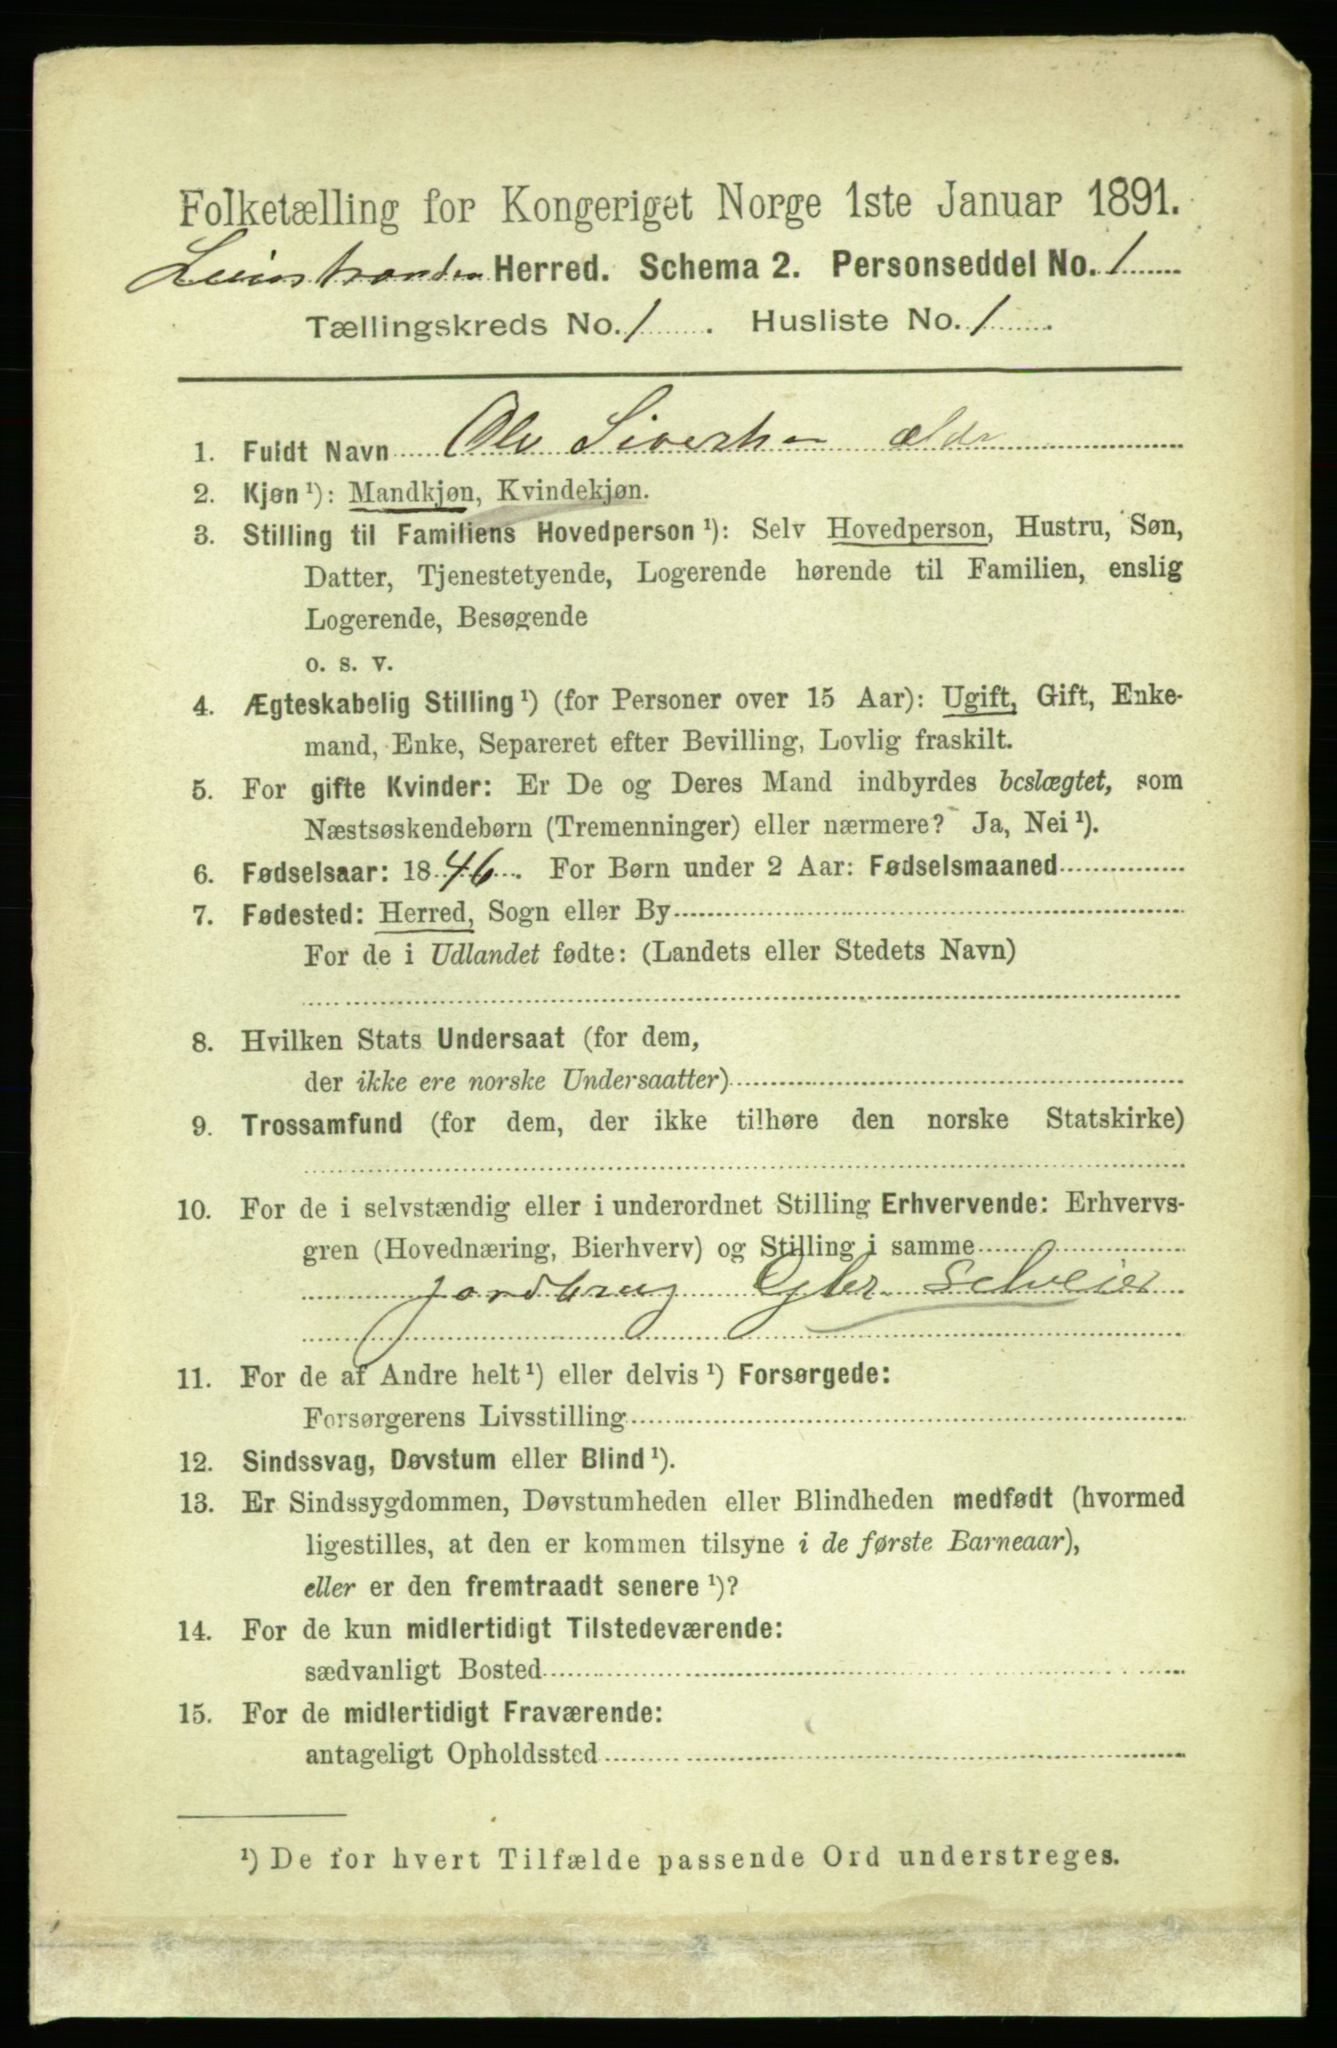 Folketælling for Kongeriget Norge 1ste Januar 1891.
Leinstranden Herred. Schema 2. Personseddel No. 1
Tællingskreds No. 1. Husliste No. 1.
1. Fuldt Navn Ole Sivertsen
2. Kjøn ¹): Mandkjøn, Kvindekjøn.
3. Stilling til Familiens Hovedperson ¹): Selv Hovedperson, Hustru, Søn,
Datter, Tjenestetyende, Logerende hørende til Familien, enslig
Logerende, Besøgende
o. s. v.
4. Ægteskabelig Stilling ¹) (for Personer over 15 Aar): Ugift, Gift, Enke-
mand, Enke, Separeret efter Bevilling, Lovlig fraskilt.
5. For gifte Kvinder: Er De og Deres Mand indbyrdes beslægtet, som
Næstsøskendebørn (Tremenninger) eller nærmere? Ja, Nei ¹).
6. Fødselsaar: 1846. For Børn under 2 Aar: Fødselsmaaned
7. Fødested: Herred, Sogn eller By
For de i Udlandet fødte: (Landets eller Stedets Navn)
8. Hvilken Stats Undersaat (for dem,
der ikke ere norske Undersaatter)
9. Trossamfund (for dem, der ikke tilhøre den norske Statskirke)
10. For de i selvstændig eller i underordnet Stilling Erhvervende: Erhvervs-
gren (Hovednæring, Bierhverv) og Stilling i samme
Jordbrug Gbr. Selveier
11. For de af Andre helt ¹) eller delvis ¹) Forsørgede:
Forsørgerens Livsstilling
12. Sindssvag, Døvstum eller Blind ¹).
13. Er Sindssygdommen, Døvstumheden eller Blindheden medfødt (hvormed
ligestilles, at den er kommen tilsyne i de første Barneaar),
eller er den fremtraadt senere ¹)?
14. For de kun midlertidigt Tilstedeværende:
sædvanligt Bosted
15. For de midlertidigt Fraværende:
antageligt Opholdssted
¹) De for hvert Tilfælde passende Ord understreges.